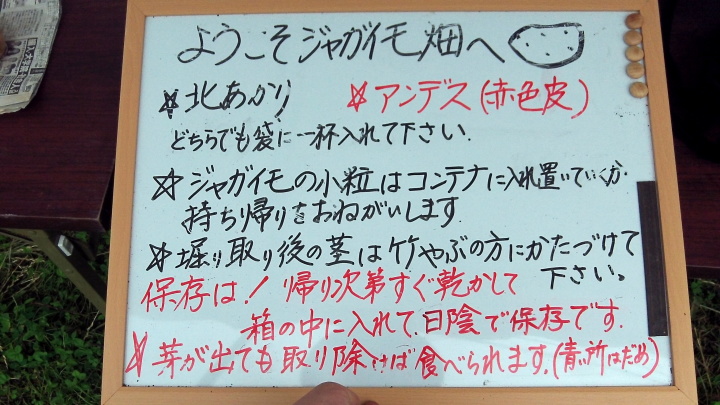 ようこそジャガイモ畑へ
☆北あかり ☆アンデス(赤色皮)
どちらでも袋に一杯入れて下さい.
☆ジャガイモの小粒はコンテナに入れ置いていくか.
持ち帰りをおねがいします.
☆堀り取り後の茎は竹やぶの方にかたづけて
下さい。
保存は！帰り次第すぐ乾かして
箱の中に入れて.日陰で保存です.
☆芽が出ても取り除けば食べられます.(青い所はだめ)